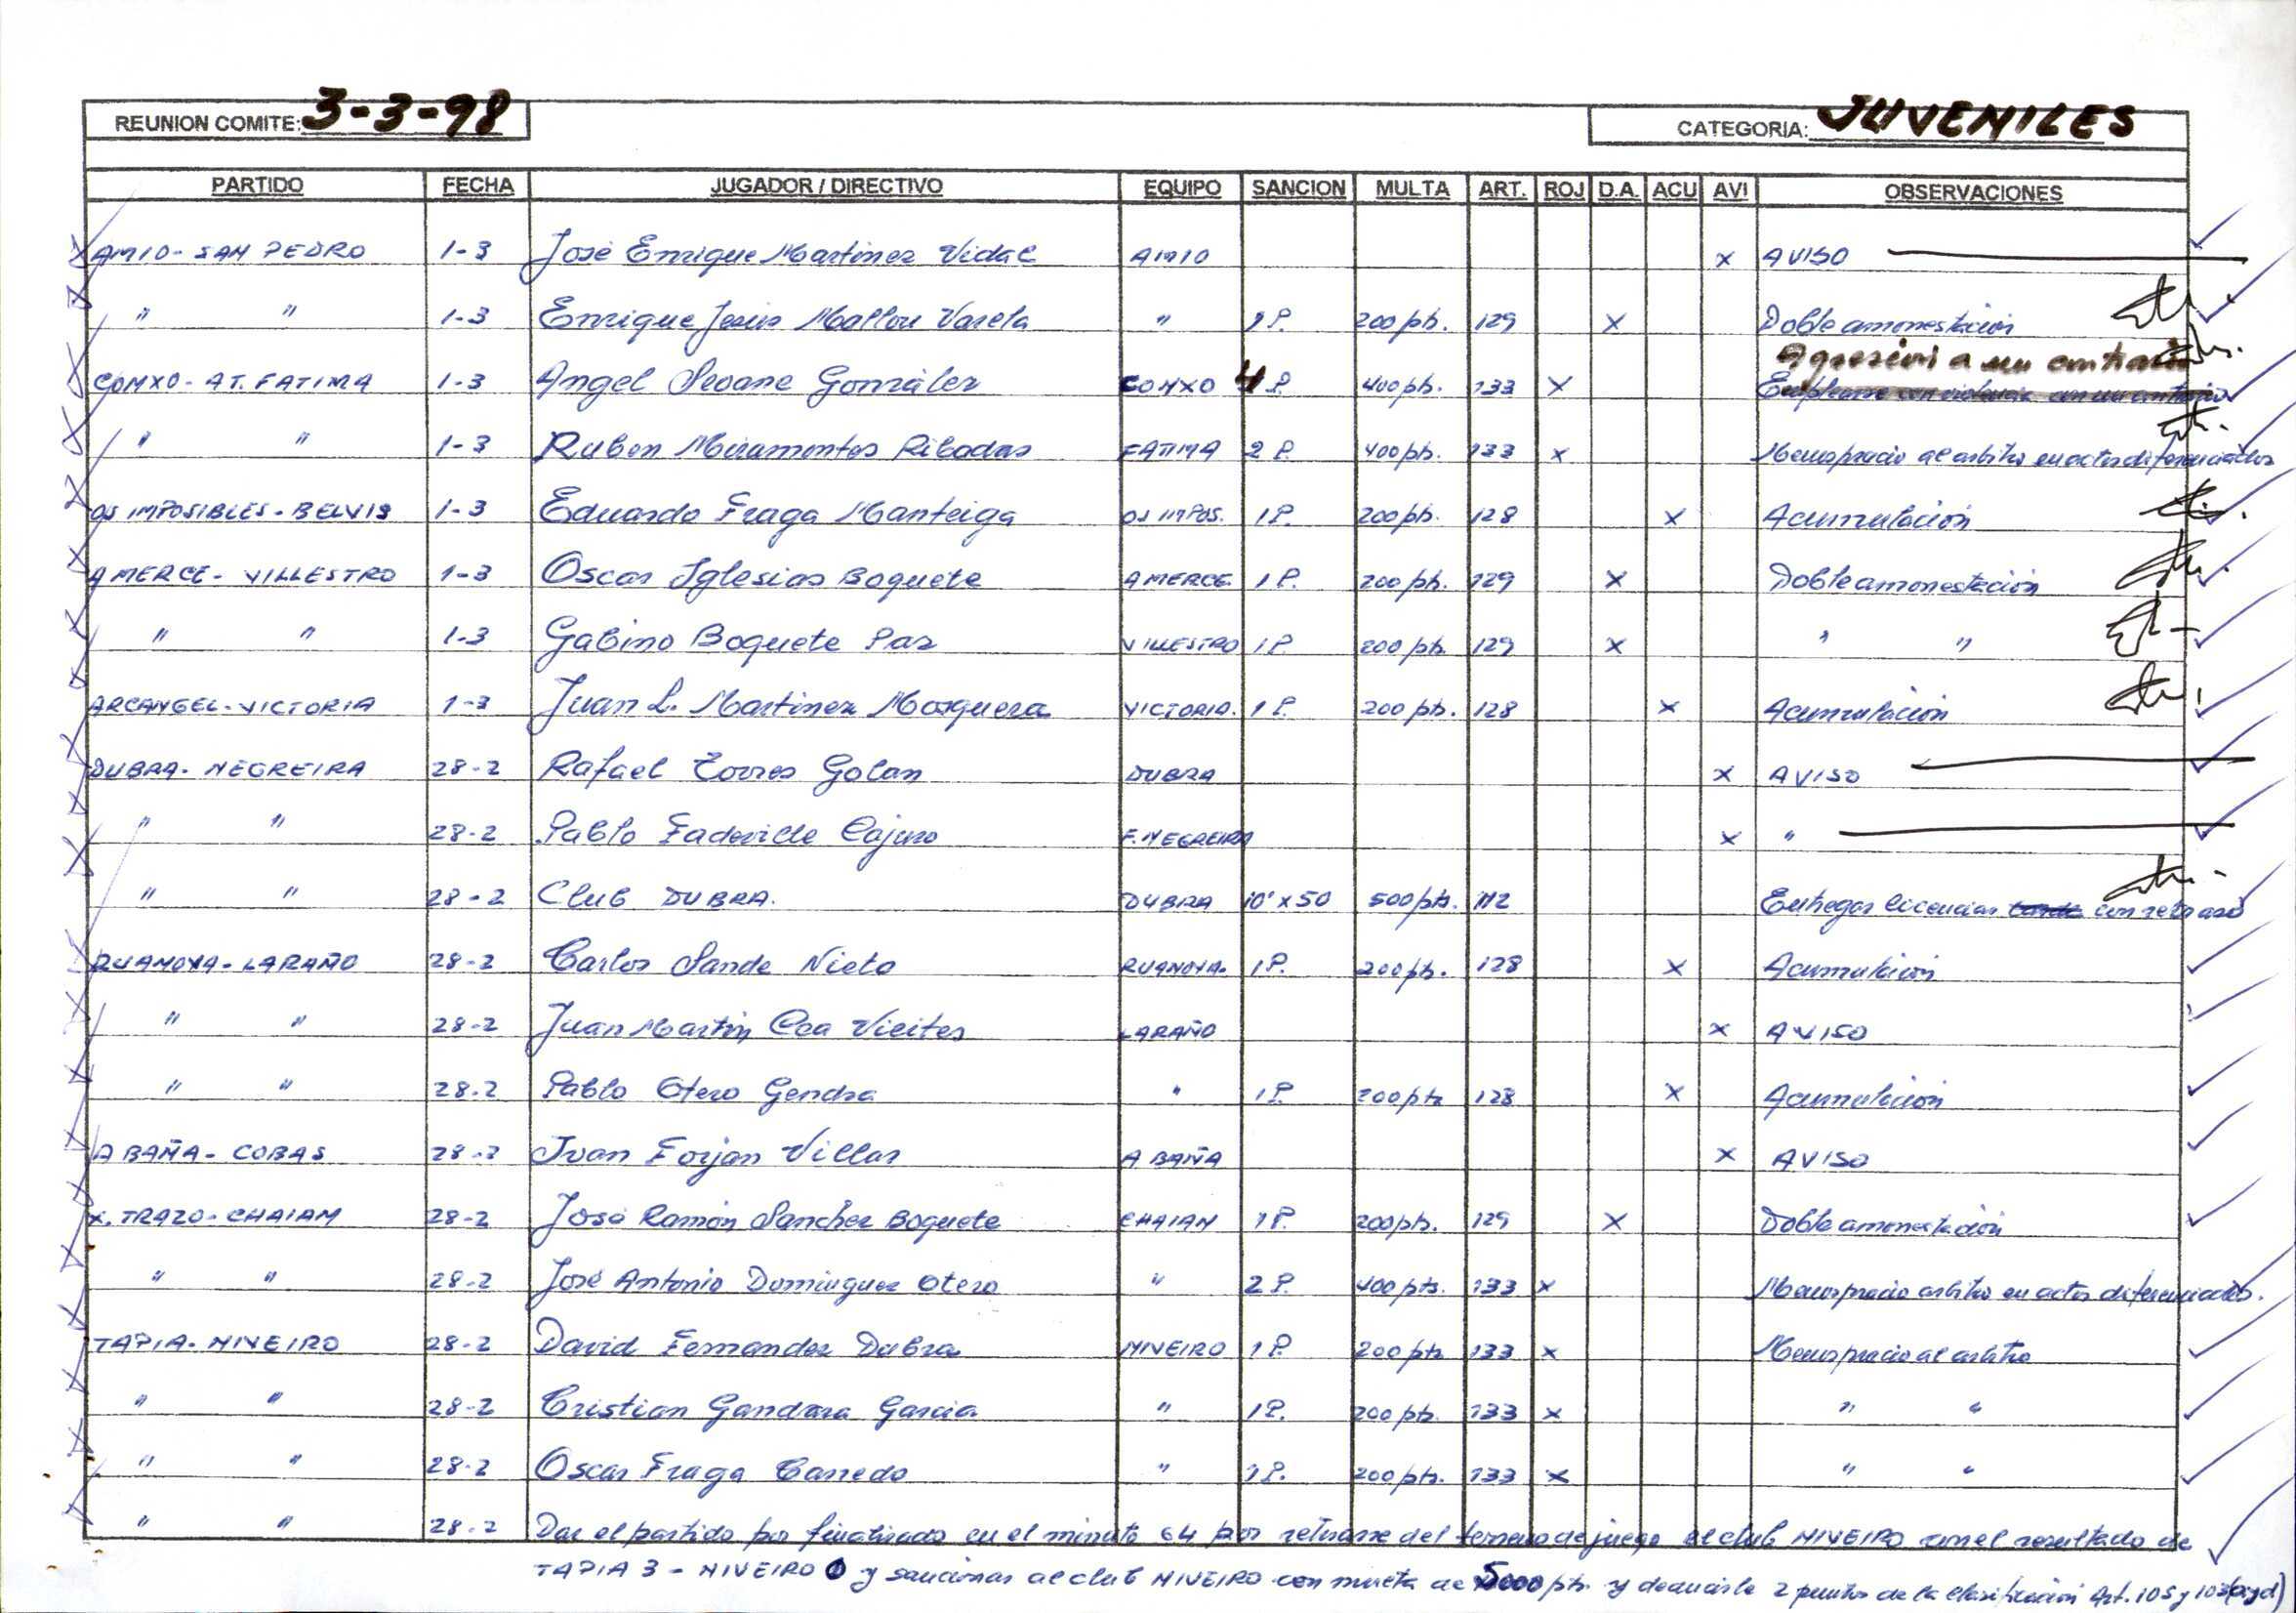 REUNION COMITE: 3-3-98 CATEGORIA: JUVENILES
PARTIDO FECHA JUGADOR / DIRECTIVO EQUIPO SANCION MULTA ART. ROJ D.A. ACU AVI OBSERVACIONES
AMIO - SAN PEDRO 1-3 José Enrique Martinez Vidal AMIO x AVISO
" " 1-3 Enrique Jesús Mallou Varela " 1 P. 200 pts. 129 x Doble amonestación
Agresión a un contrario
CONXO - AT. FATIMA 1-3 Angel Seoane González CONXO 4 P. 400 pts. 133 x Emplearse con violencia con un contrario
" " 1-3 Ruben Miramontes Ribadas FATIMA 2 P. 400 pts. 133 x Menosprecio al arbitro en actos diferenciados
OS IMPOSIBLES - BELVIS 1-3 Eduardo Fraga Manteiga OS IMPOS. 1 P. 200 pts. 128 x Acumulación
A MERCE - VILLESTRO 1-3 Oscar Iglesias Boquete A MERCE. 1 P. 200 pts. 129 x Doble amonestación
" " 1-3 Gabino Boquete Paz VILLESTRO 1 P. 200 pts. 129 x " "
ARCANGEL - VICTORIA 1-3 Juan L. Martinez Mosquera VICTORIA. 1 P. 200 pts. 128 x Acumulación
DUBRA - NEGREIRA 28-2 Rafael Torres Golan DUBRA x AVISO
" " 28-2 Pablo F. NEGREIRA x "
" " 28-2 Club DUBRA. DUBRA 10' x 50 500 pts. 112 Entregar licencias tarde con retraso
RUANOVA - LARAÑO 28-2 Carlos Sande Nieto RUANOVA. 1 P. 200 pts. 128 x Acumulación
" " 28-2 Juan Martin Cea Vieites LARAÑO x AVISO
" " 28-2 Pablo Otero Gendra " 1 P. 200 pts 128 x Acumulación
A BAÑA - COBAS 28-2 Ivan Forjan Villar A BAÑA x AVISO
X. TRAZO - CHAIAN 28-2 José Ramón Sanchez Boquete CHAIAN 1 P. 200 pts. 129 x Doble amonestación
" " 28-2 José Antonio Dominguez Otero " 2 P. 400 pts. 133 x Menosprecio arbitro en actos diferenciados.
TAPIA - NIVEIRO 28-2 David Fernandez Dubra NIVEIRO 1 P. 200 pts 133 x Menosprecio al arbitro
" " 28-2 Cristian Gandara Garcia " 1 P. 200 pts. 133 x " "
" " 28-2 Oscar Fraga Carredo " 1 P. 200 pts. 133 x " "
" " 28-2 Dar el partido por finalizado en el minuto 64 por retirarse del terreno de juego el club NIVEIRO con el resultado de
TAPIA 3 - NIVEIRO 0 y sancionar al club NIVEIRO con multa de 5000 pts. y deducirle 2 puntos de la clasificación Art. 105 y 103